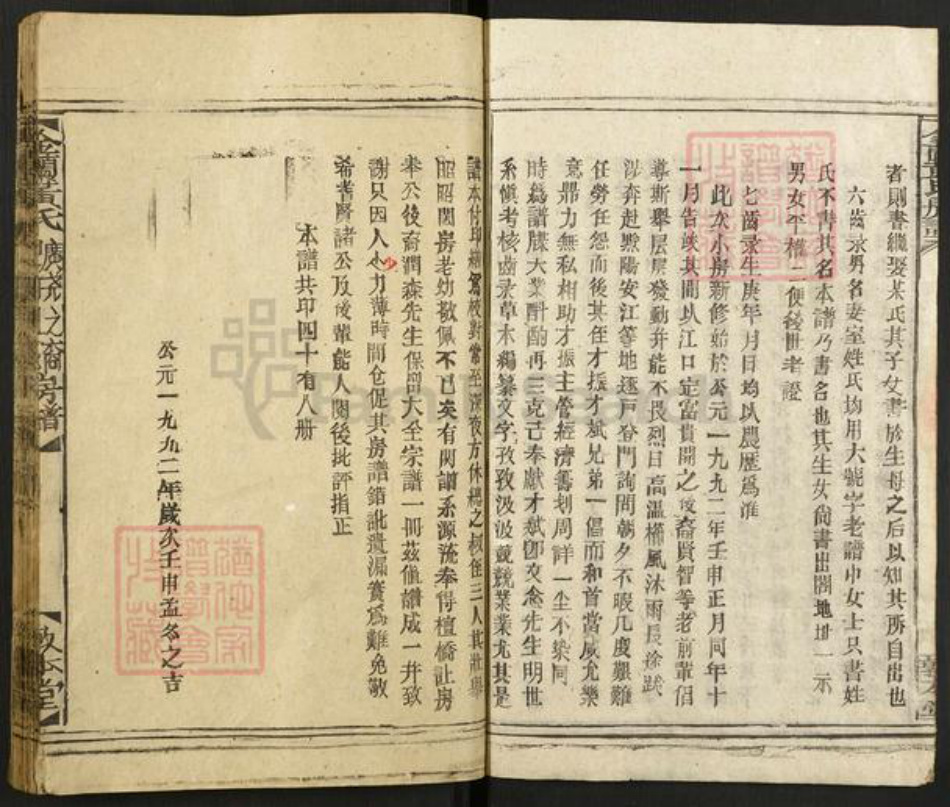 者則書繼娶某氏其子女書於生母之后以知其所自出也
六齒录男名妻室姓氏均用大號字老譜中女士只書姓
氏不書其名本譜乃書名也其生女尙書出閣地址一示
男女平權二便後世者證
七齒录生庚年月日均以農歷爲准
此次小房新修始於公元一九九二年壬申正月同年十
一月告竣其間以江口定富貴開之後裔賢智等老前輩倡
導斯舉层层發动并能不畏烈日高温櫛風沐雨長途跋
涉奔赴黔陽安江等地逐戸登門詢問朝夕不暇几度艱難
任勞任怨而後其侄才振才斌兄弟一倡而和首當咸允樂
意鼎力無私相助才振主管經濟籌划周詳一尘不染同
時爲譜牒大業酌酌再三克己奉獻才斌卽交念先生明世
系慎考核齒录草本編纂文字孜孜汲汲兢兢業業尤其是
譜本付印繕寫校對常至深夜方休樓之叔侄三人其壯舉
昭昭闔房老幼敬佩不已矣有関譜系源流奉得檀橋让房
奉公後裔潤森先生保留大全宗譜一冊茲值譜成一并致
謝只因人少力薄時間仓促其房譜錯訛遺漏實爲難免敬
希耆賢諸公及後輩能人閱後批評指正
本譜共印四十有八册
公元一九九二年歲次壬申孟冬之吉
黄氏
之裔房譜
敦本堂